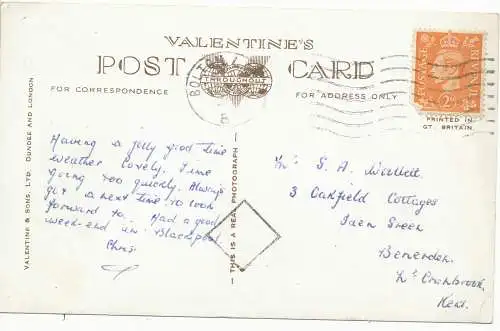 VALENTINE'S
POST CARD
FOR CORRESPONDENCE
FOR ADDRESS ONLY
THROUGHOUT
BOLT
B
PRINTED IN
GT. BRITAIN.
VALENTINE & SONS, LTD. DUNDEE AND LONDON
THIS IS A REAL PHOTOGRAPH
Having a jolly good time
weather lovely. Time
going too quickly. Always
got a next time to look
forward to. Had a good
week-end in Blackpool.
Chris
S. A.
3 Oakfield Cottages
Green
Benenden
Nr Cranbrook
Kent.